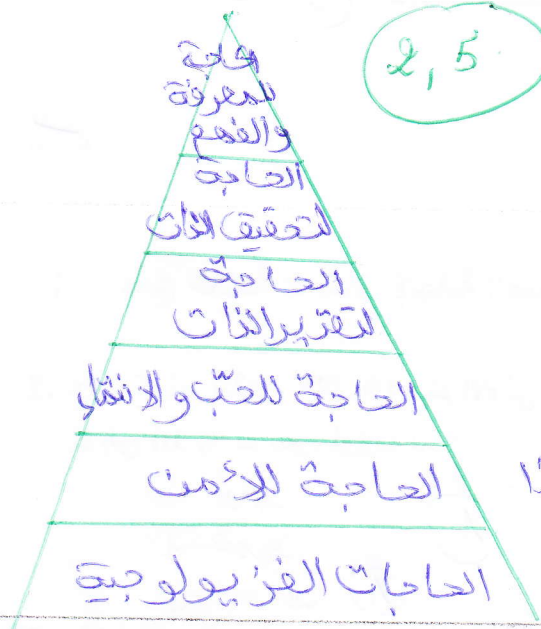 2,5
الحاجة
للمعرفة
والفهم
الحاجة
لتحقيق الذات
الحاجة
لتقدير الذات
الحاجة للحبّ والانتماء
الحاجة للأمن
الحاجات الفزيولوجية